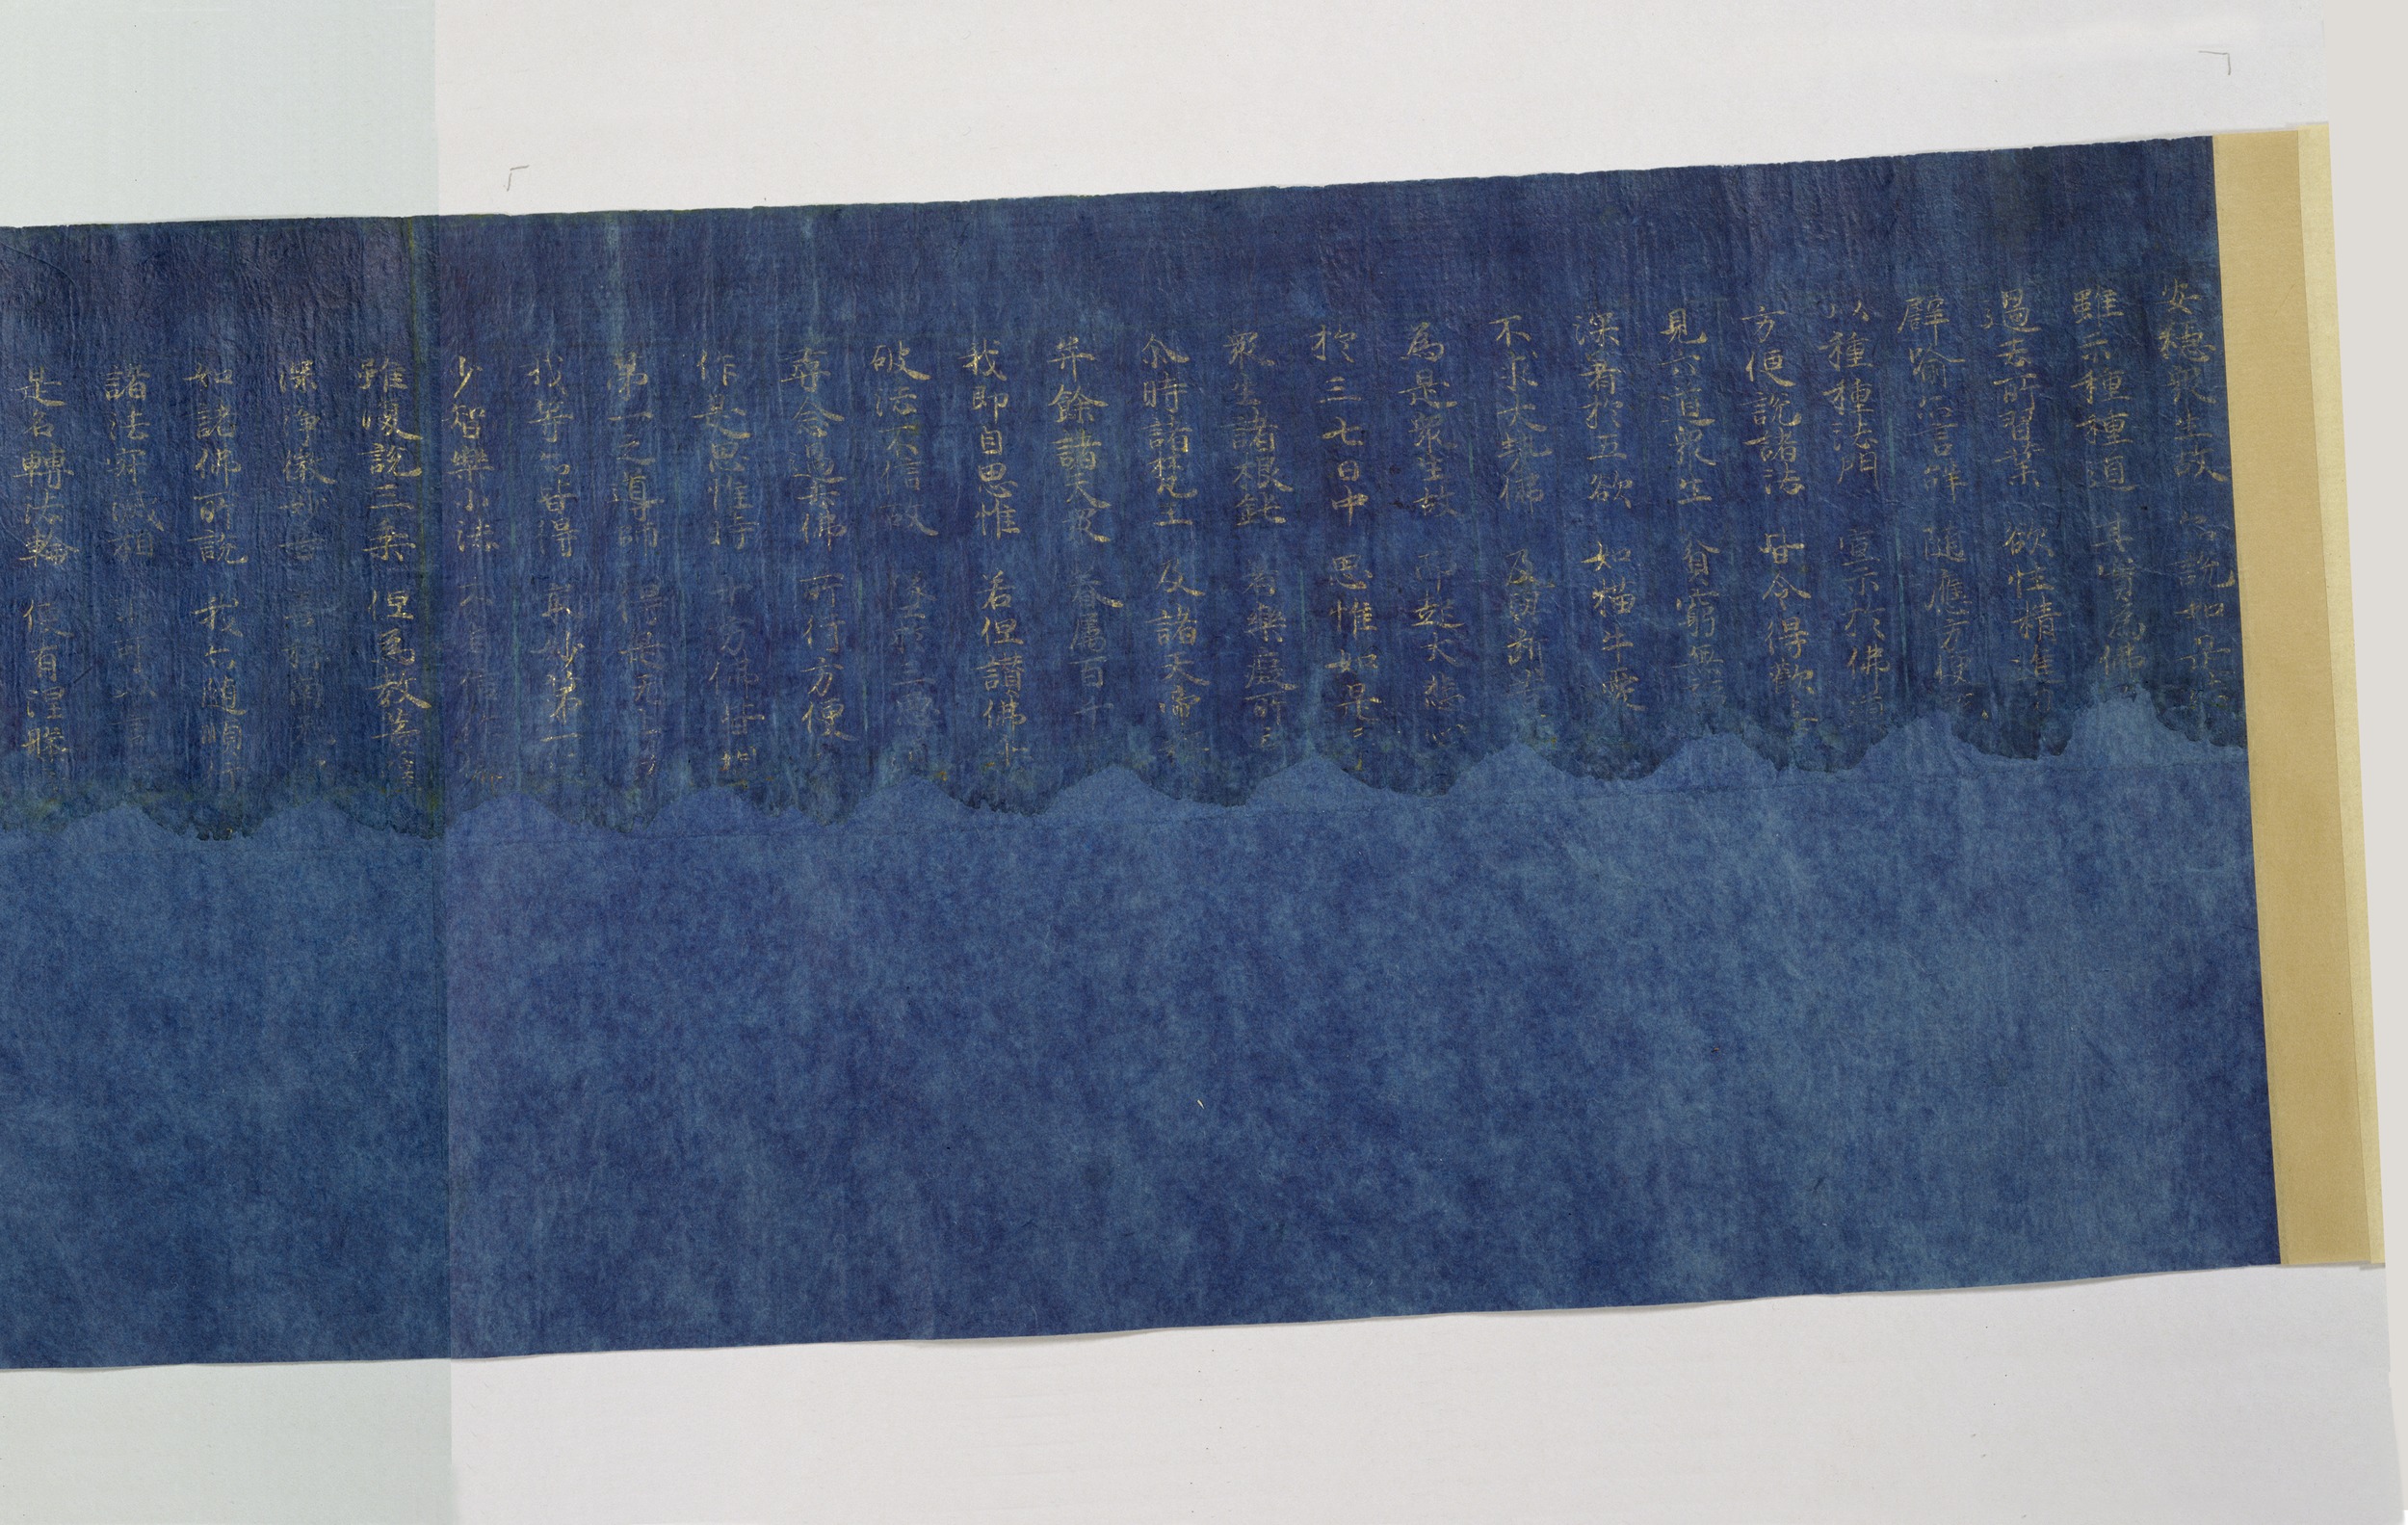 安穩衆生故 亦說如是法
雖示種種道 其實為佛
過去所習業 欲性精進力
譬喻亦言辞 随應方便
以種種法門 宣示於佛道
方便說諸法 皆令得歡喜
見六道衆生 貧窮無
深著於五欲 如猫牛愛
不求大勢佛 及與斷苦
為是衆生故 而起大悲心
於三七日中 思惟如是
衆生諸根鈍 著樂癡所
尒時諸梵王 及諸天帝釋
并餘諸天衆 眷属百千
我即自思惟 若但讃佛
破法不信故 墜於三惡
尋念過去佛 所行方便
作是思惟時 十方佛皆現
第一之導師 得是无上
我等亦皆得 最妙第一
少智樂小法 不自信作佛
雖復說三乘 但為教菩薩
深淨微妙音 喜稱南无
如諸佛所說 我亦随順行
諸法寂滅相 不可以言
是名轉法輪 便有涅槃